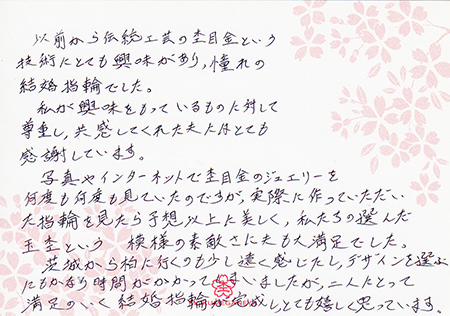 以前から伝統工芸の杢目金という
技術にとても興味があり、憧れの
結婚指輪でした。
私が興味をもっているものに対して
尊重し、共感してくれた夫にはとても
感謝しています。
写真やインターネットで杢目金のジュエリーを
何度も何度も見ていたのですが、実際に作っていただい
た指輪を見たら予想以上に美しく、私たちの選んだ
玉杢という 模様の素敵さに夫も大満足でした。
茨城から柏に行くのも少し遠く感じたし、デザインを選ぶ
にもかなり時間がかかって いましたが、二人にとって
満足のいく結婚指輪が完成しとても嬉しく思っています。